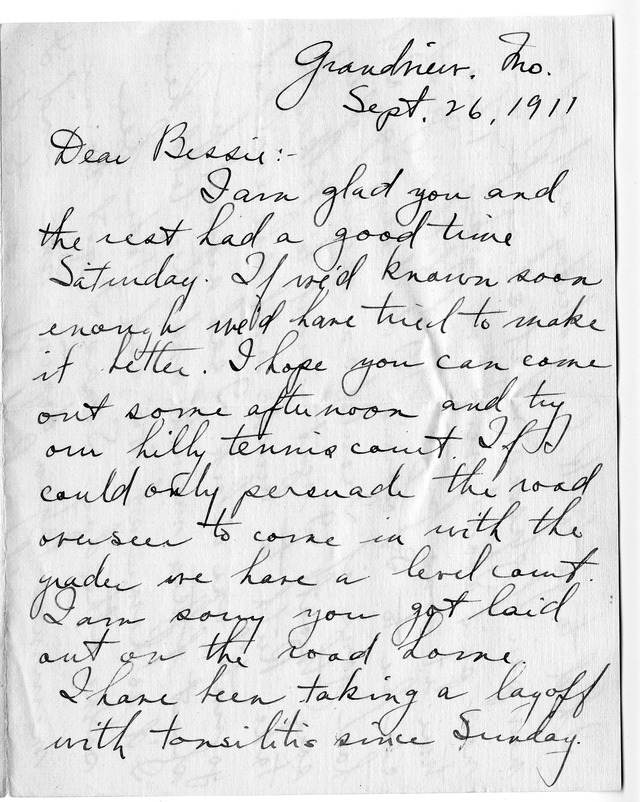 Grandview, Mo.
Sept. 26, 1911
Dear Bessie:-
I am glad you and
the rest had a good time
Saturday. If we'd known soon
enough we'd have tried to make
it better. I hope you can come
out some afternoon and try
our hilly tennis court. If I
could only persuade the road
overseer to come in with the
grader we have a level court.
I am sorry you got laid
out on the road home.
I have been taking a layoff
with tonsilitis since Sunday.